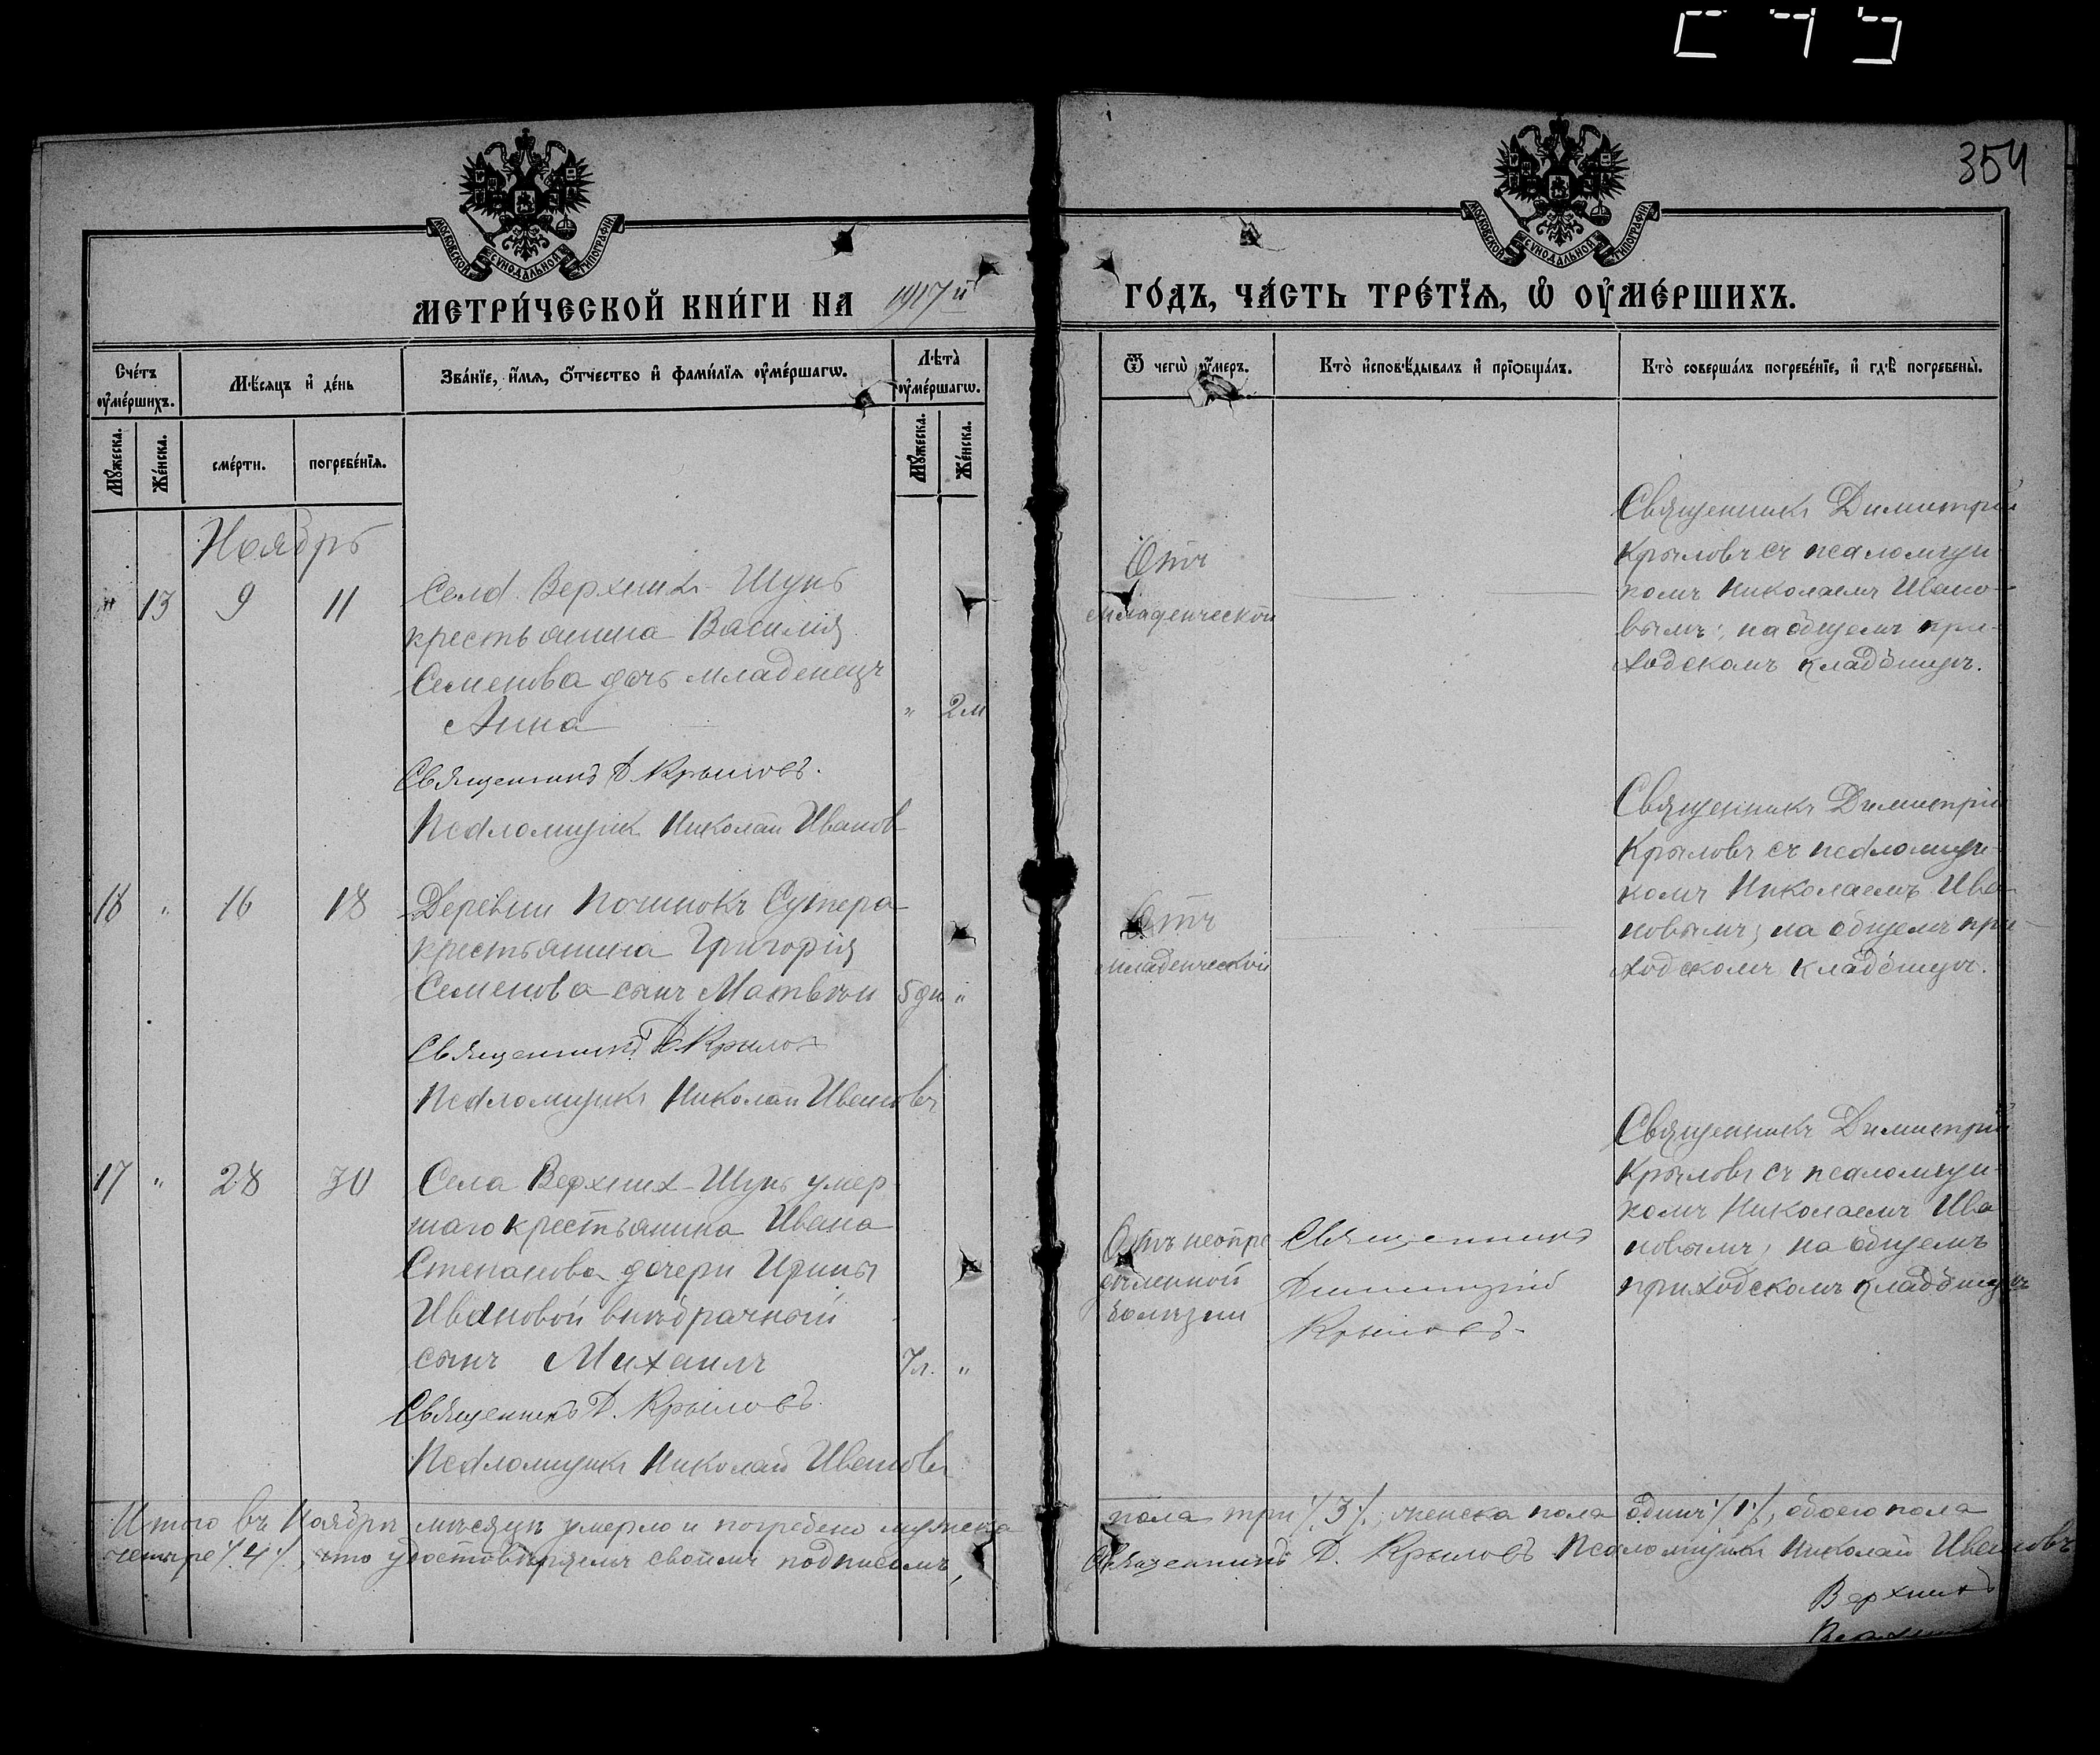 354
МОСКОВСКОЙ СѴНОДАЛЬНОЙ ТИПОГРАФІИ
МОСКОВСКОЙ СѴНОДАЛЬНОЙ ТИПОГРАФІИ
МЕТРИ́ЧЕСКОЙ КНИ́ГИ НА 1917й ГО́ДЪ, ЧА́СТЬ ТРЕ́ТІѦ, Ѽ ОУ҆МЕ́РШИХЪ.
Сче́тъ оу҆ме́ршихъ.
Мѣ́сяцъ и҆ де́нь
Зва́нїе, и҆́мѧ, ѻ҆́тчество и҆ фами́лїѧ оу҆ме́ршагѡ.
Лѣта̀ оу҆ме́ршагѡ.
Ѿ чегѡ̀ оу҆́меръ.
Кто̀ и҆сповѣ́дывалъ и҆ прїѡбща́лъ.
Кто̀ соверша́лъ погребе́нїе, и҆ гдѣ̀ погребены̀.
Мꙋ́жеска.
Же́нска.
сме́рти.
погребе́нїѧ.
Мꙋ́жеска.
Же́нска.
Ноябрь
" 13 9 11
Села Верхних-Шунь
крестьянина Василія
Семенова дочь младенецъ
Анна
" 2м
Священникъ Д. Крыловъ.
Псаломщик Николай Иванов
Отъ
младенческой
Священникъ Димитрій
Крыловъ съ псаломщи
комъ Николаемъ Ивано-
вымъ; на общемъ при-
ходскомъ кладбищѣ.
18 " 16 18
Деревни Починокъ Сутера
крестьянина Григорія
Семенова сынъ Матвѣй
5 дн "
Священникъ Д. Крылов
Псаломщикъ Николай Ивановъ
Отъ
младенческой
Священникъ Димитрій
Крыловъ съ псаломщи-
комъ Николаемъ Ива-
новымъ; на общемъ при-
ходскомъ кладбищѣ.
17 " 28 30
Села Верхних-Шунь умер
шаго крестьянина Ивана
Степанова дочери Ирины
Ивановой внѣбрачный
сынъ Михаилъ
7л. "
Священникъ Д. Крыловъ.
Псаломщикъ Николай Ивановъ
Отъ неопре
дѣленной
болѣзни
Священникъ
Димитрій
Крыловъ.
Священникъ Димитрій
Крыловъ съ псаломщи-
комъ Николаемъ Ива-
новымъ, на общемъ
приходскомъ кладбищѣ
Итого въ Ноябрѣ мѣсяцѣ умерло и погребено мужеска пола три /.3/., женска пола одинъ /.1/., обоего пола
четыре /.4/., что удостовѣряемъ своимъ подписомъ, Священникъ Д. Крыловъ Псаломщикъ Николай Ивановъ
Верхнихъ